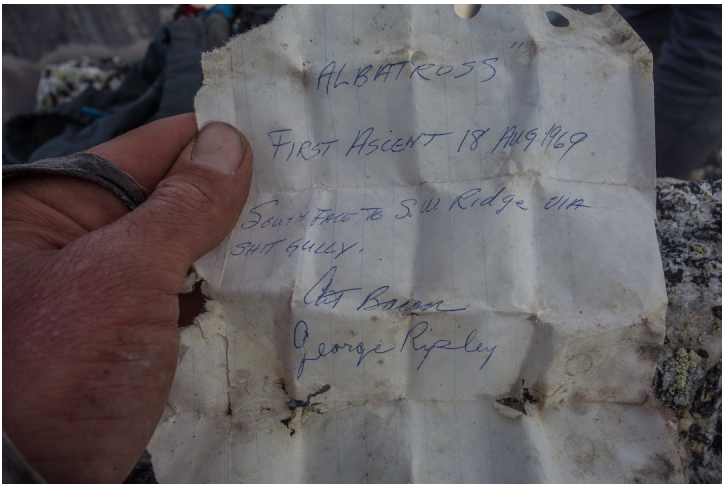 ALBATROSS"
FIRST ASCENT 18 AUG 1969
SOUTH FACE TO S.W. Ridge VIA
SHIT GULLY.
Art
George Ripley